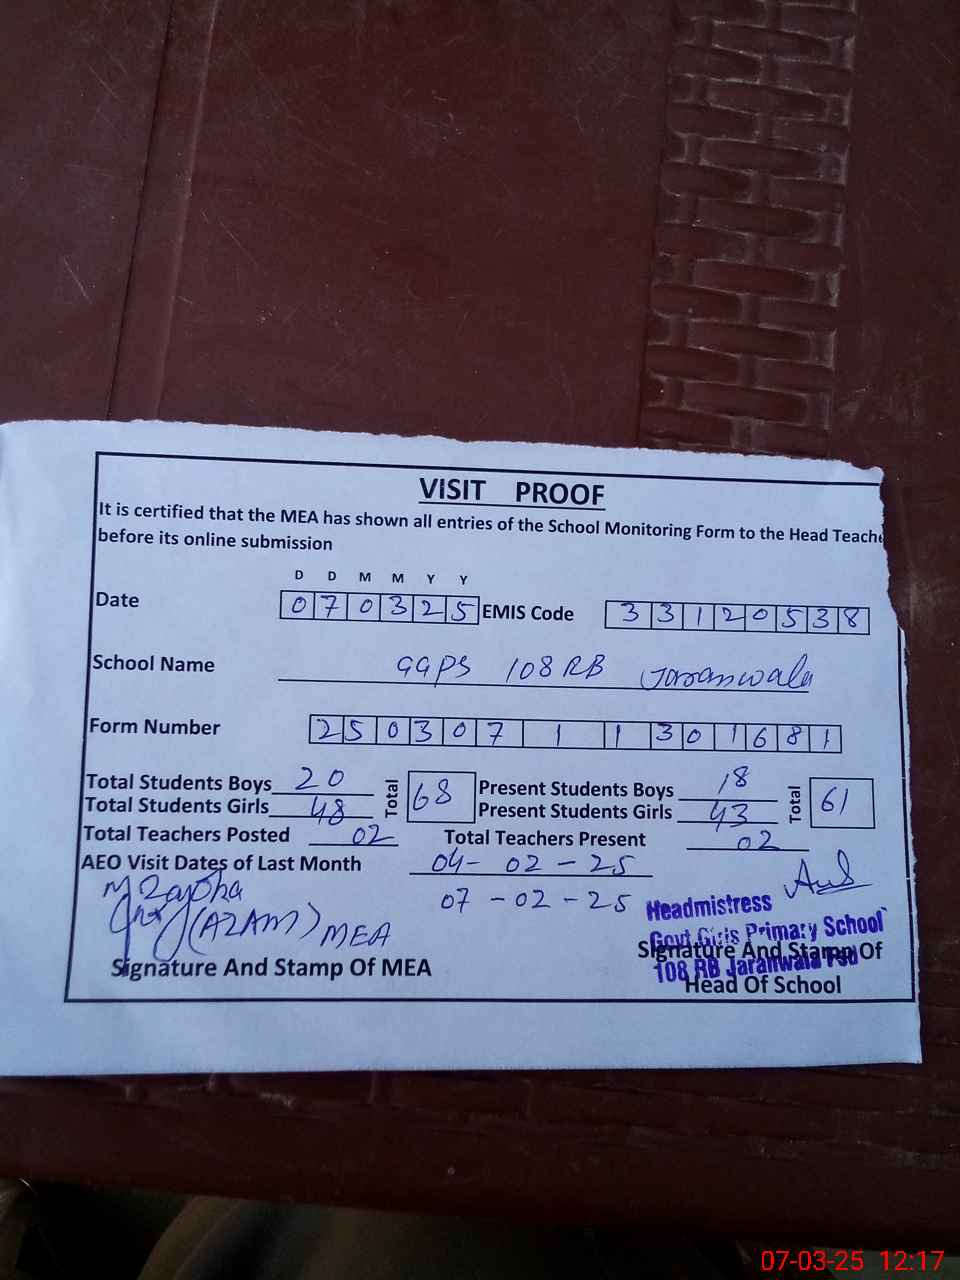 VISIT PROOF
It is certified that the MEA has shown all entries of the School Monitoring Form to the Head Teache
before its online submission
D D M M Y Y
Date 0 7 0 3 2 5 EMIS Code 3 3 1 2 0 5 3 8
School Name GGPS 108 RB Jaranwala
Form Number 2 5 0 3 0 7 1 1 3 0 1 6 8 1
Total Students Boys 20 Total 68 Present Students Boys 18 Total 61
Total Students Girls 48 Present Students Girls 43
Total Teachers Posted 02 Total Teachers Present 02
AEO Visit Dates of Last Month 04-02-25
07-02-25
(AZAM) MEA
Headmistress
Govt Girls Primary School
108 RB Jaranwala
Signature And Stamp Of MEA
Signature And Stamp Of
Head Of School
07-03-25 12:17